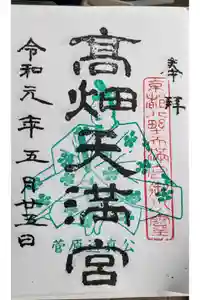 奉拝
高畑天満宮
菅原道真公
令和元年五月廿五日